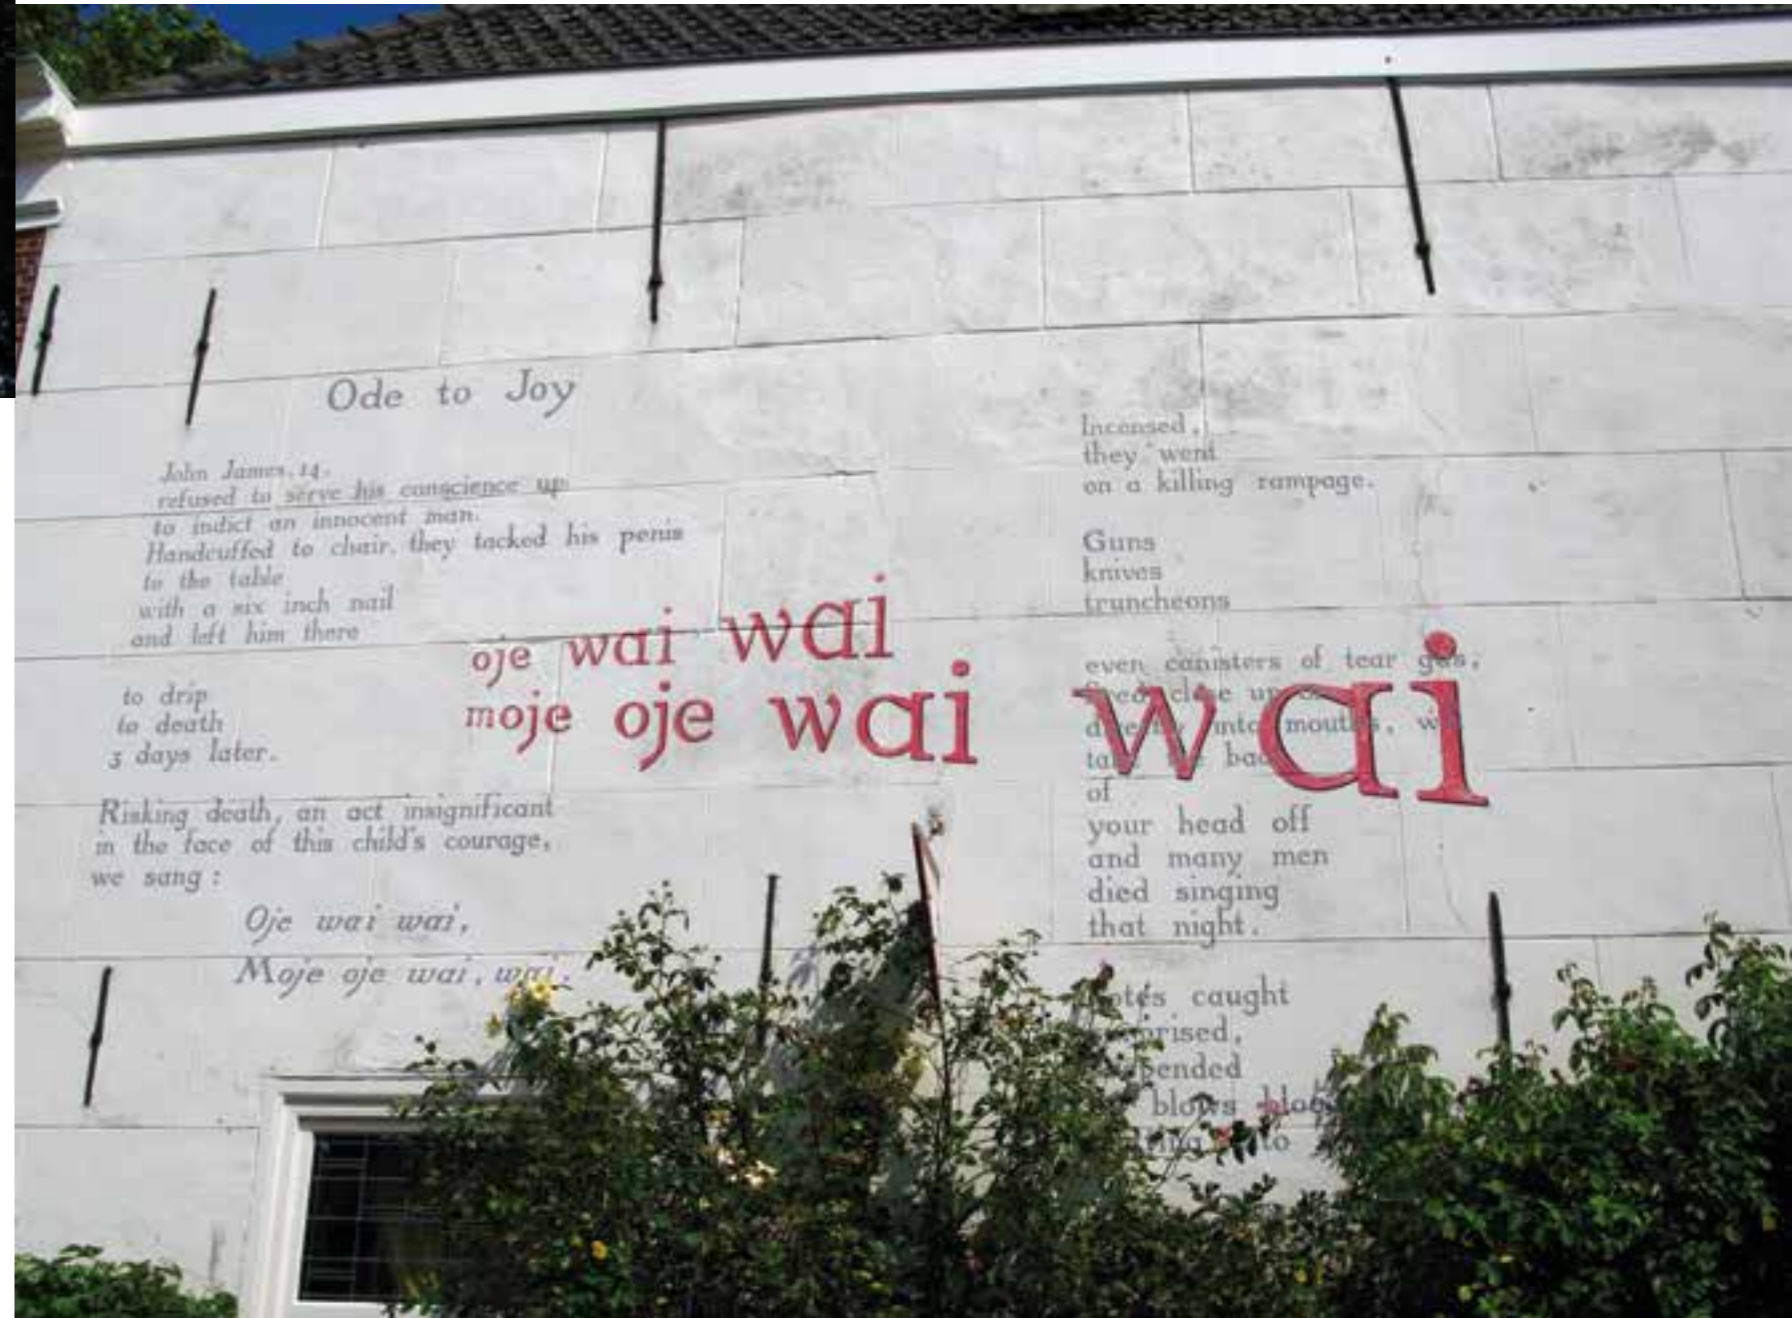 Ode to Joy
John James, 14,
refused to serve his conscience up
to indict an innocent man.
Handcuffed to chair, they tacked his penis
to the table
with a six inch nail
and left him there
to drip
to death
3 days later.
Risking death, an act insignificant
in the face of this child's courage,
we sang :
Oje wai wai,
Moje oje wai, wai.
oje wai wai
moje oje wai wai
Incensed,
they went
on a killing rampage.
Guns
knives
truncheons
even canisters of tear gas,
close up
into mouths,
of
your head off
and many men
died singing
that night.
caught
blows
to